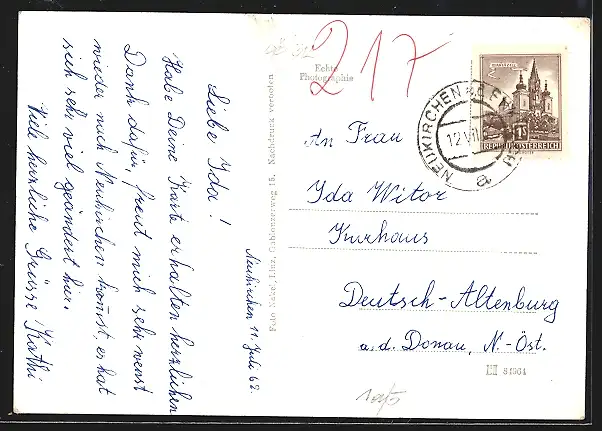 Neukirchen 11. Juli 62.
Liebe Ida!
Habe Deine Karte erhalten herzlichen
Dank dafür, freut mich sehr wenst
wieder nach Neukirchen kommst, es hat
sich sehr viel geändert hier.
Viele herzliche Grüsse Kathi
Echte
Photographie
217
Foto Nagel, Linz, Gablonzerweg 15. Nachdruck verboten
MARIAZELL
1S
REPUBLIK ÖSTERREICH
NEUKIRCHEN a. d. EN
12.VII
a
An Frau
Ida Witor
Kurhaus
Deutsch-Altenburg
a. d. Donau, N-Öst.